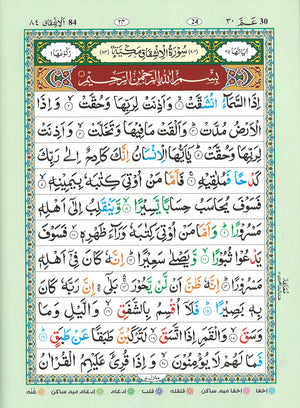 30 عَمَّ ٣٠
24
٢٣
84 الانشقاق ٨٤
اٰیاتها ٢٥ سُوْرَةُ الْاِنْشِقَاقِ مَكِّيَّةٌ رکوعها ١
بِسْمِ اللّٰهِ الرَّحْمٰنِ الرَّحِيْمِ
اِذَا السَّمَآءُ انْشَقَّتْ ۙ۱ وَاَذِنَتْ لِرَبِّهَا وَحُقَّتْ ۙ۲ وَاِذَا
الْاَرْضُ مُدَّتْ ۙ۳ وَاَلْقَتْ مَا فِيْهَا وَتَخَلَّتْ ۙ۴ وَاَذِنَتْ
لِرَبِّهَا وَحُقَّتْ ؕ۵ يٰۤاَيُّهَا الْاِنْسَانُ اِنَّكَ كَادِحٌ اِلٰى رَبِّكَ
كَدْحًا فَمُلٰقِيْهِ ۚ۶ فَاَمَّا مَنْ اُوْتِيَ كِتٰبَهٗ بِيَمِيْنِهٖ ۙ۷
فَسَوْفَ يُحَاسَبُ حِسَابًا يَّسِيْرًا ۙ۸ وَّيَنْقَلِبُ اِلٰۤى اَهْلِهٖ
مَسْرُوْرًا ؕ۹ وَاَمَّا مَنْ اُوْتِيَ كِتٰبَهٗ وَرَآءَ ظَهْرِهٖ ۙ۱۰ فَسَوْفَ
يَدْعُوْا ثُبُوْرًا ۙ۱۱ وَّيَصْلٰى سَعِيْرًا ؕ۱۲ اِنَّهٗ كَانَ فِيْۤ اَهْلِهٖ
مَسْرُوْرًا ؕ۱۳ اِنَّهٗ ظَنَّ اَنْ لَّنْ يَّحُوْرَ ۚۛ۱۴ بَلٰۤى ۚۛ اِنَّ رَبَّهٗ كَانَ
بِهٖ بَصِيْرًا ؕ۱۵ فَلَاۤ اُقْسِمُ بِالشَّفَقِ ۙ۱۶ وَالَّيْلِ وَمَا
وَسَقَ ۙ۱۷ وَالْقَمَرِ اِذَا اتَّسَقَ ۙ۱۸ لَتَرْكَبُنَّ طَبَقًا عَنْ طَبَقٍ ؕ۱۹
فَمَا لَهُمْ لَا يُؤْمِنُوْنَ ۙ۲۰ وَاِذَا قُرِئَ عَلَيْهِمُ الْقُرْاٰنُ
اخفا اخفاء میم ساکن قلقله قلب ادغام ادغام میم ساکن غنه